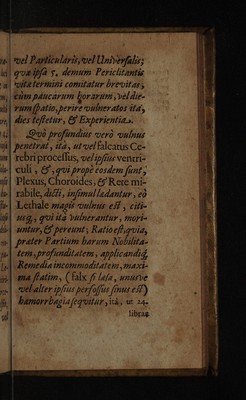 vel Particularis, vel Universalis;
quæ ipsa 5. demum Periclitantis
vitæ termini comitatur brevitas,
cùm paucarum horarum, vel die-
rum spatio, perire vulneratos ita,
dies testetur, & Experientia.
Quò profundius verò vulnus
penetrat, ita, ut vel falcatus Ce-
rebri processus, vel ipsius ventri-
culi, &, qui propè eosdem sunt,
Plexus, Choroides, & Rete mi-
rabile, dicti, insimul lædantur, eò
Lethale magis vulnus est, citi-
usq;, qui ita vulnerantur, mori-
untur, & pereunt; Ratio est, quia,
præter Partium harum Nobilita-
tem, profunditatem, applicandiq;
Remedia incommoditatem, maxi-
ma statim, (Falx si læsa, unusve
vel alter ipsius perfossus sinus est)
hæmorrhagia sequitur, ità, ut 24.
libras